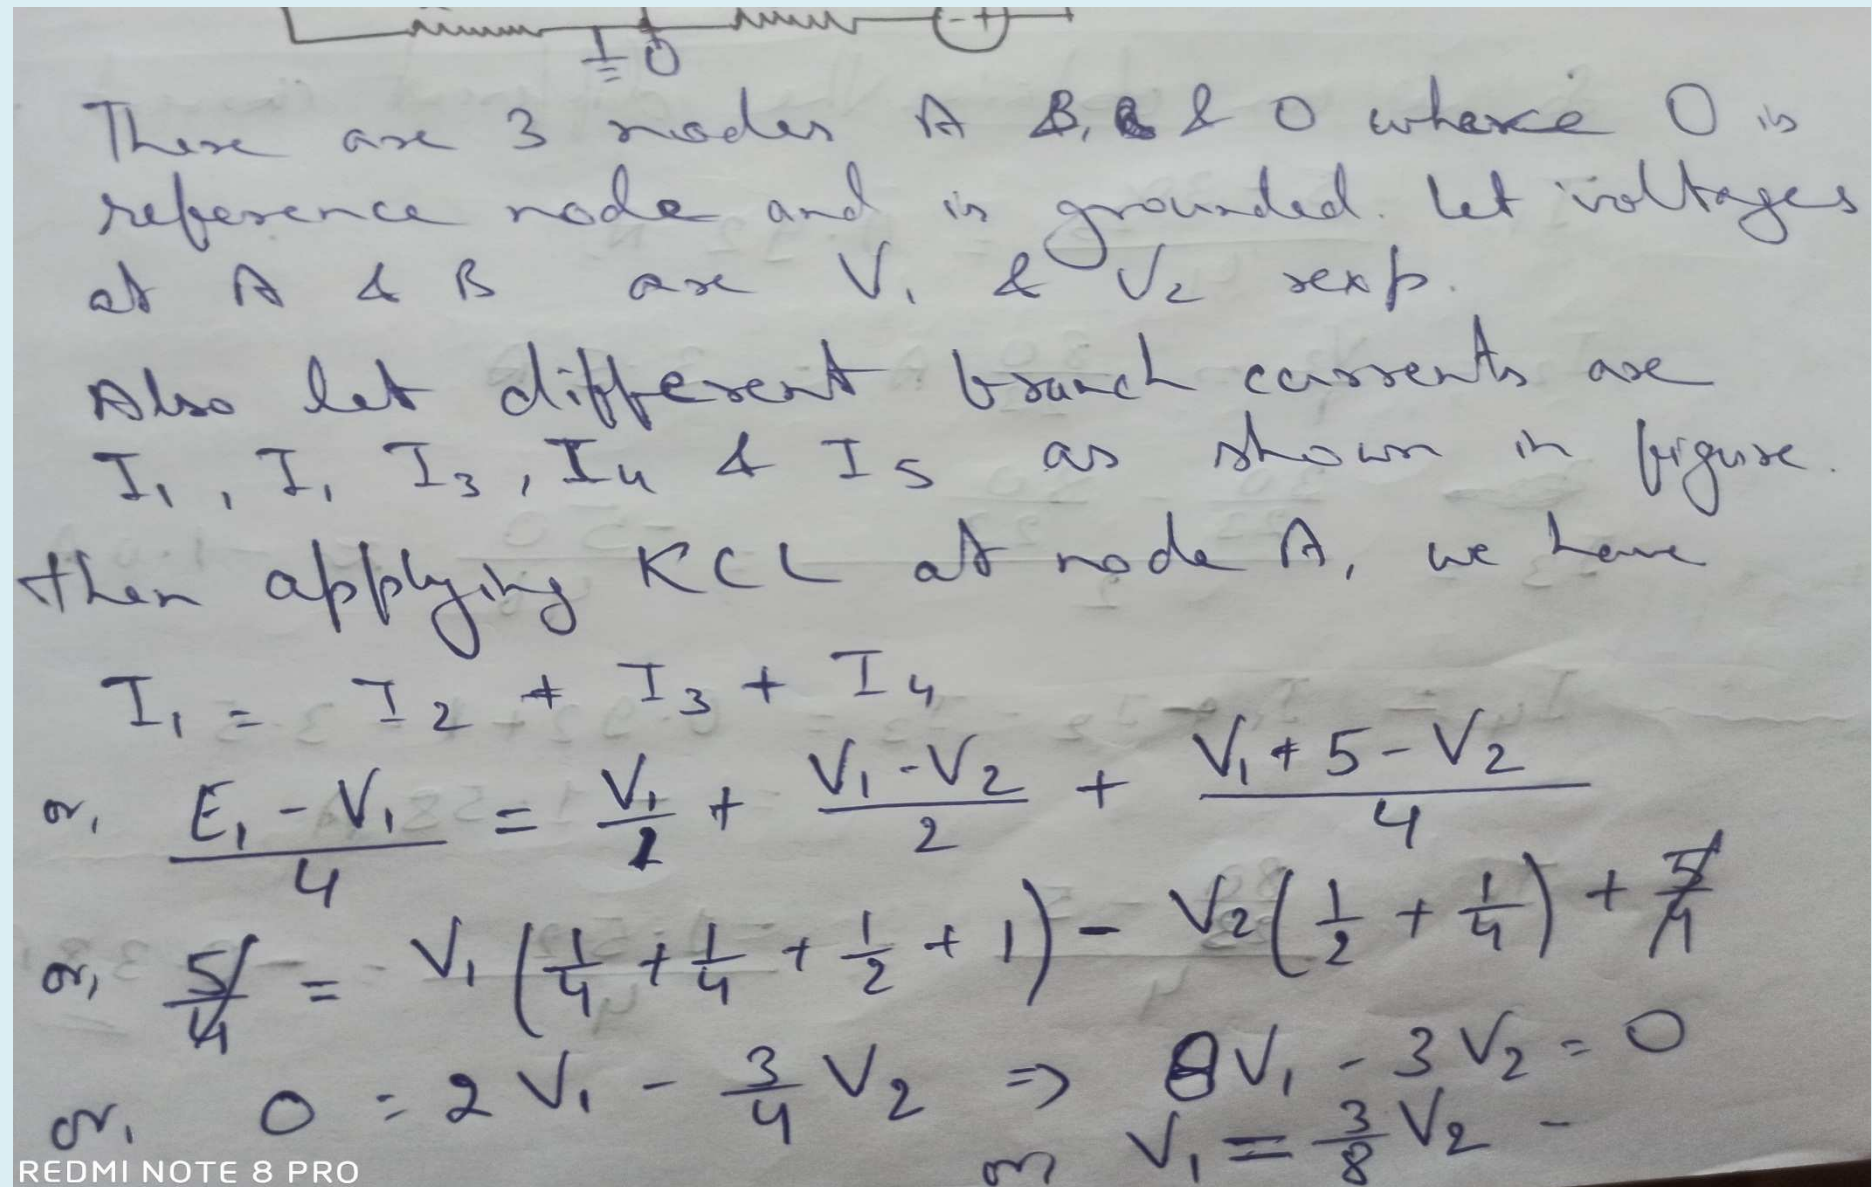 - +
O
There are 3 nodes A B, & O where O is
reference node and is grounded. Let voltages
at A & B are V₁ & V₂ resp.
Also let different branch currents are
I₁, I, I₃, I₄ & I₅ as shown in figure.
then applying KCL at node A, we have
I₁ = I₂ + I₃ + I₄
or, (E₁ - V₁)/4 = V₁/1 + (V₁ - V₂)/2 + (V₁ + 5 - V₂)/4
or, 5/4 = V₁(1/4 + 1/4 + 1/2 + 1) - V₂(1/2 + 1/4) + 5/4
or, 0 = 2V₁ - 3/4 V₂ => 8V₁ - 3V₂ = 0
or V₁ = 3/8 V₂ -
REDMI NOTE 8 PRO